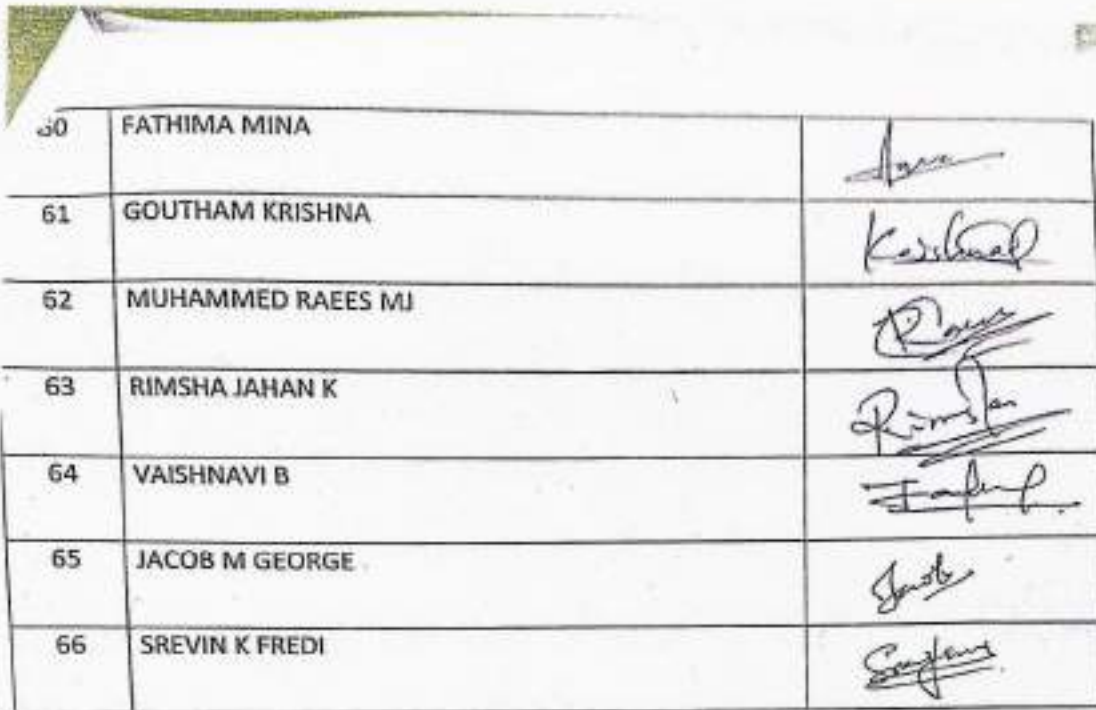 60 FATHIMA MINA
61 GOUTHAM KRISHNA Krishna
62 MUHAMMED RAEES MJ
63 RIMSHA JAHAN K Rimsha
64 VAISHNAVI B
65 JACOB M GEORGE Jacob
66 SREVIN K FREDI